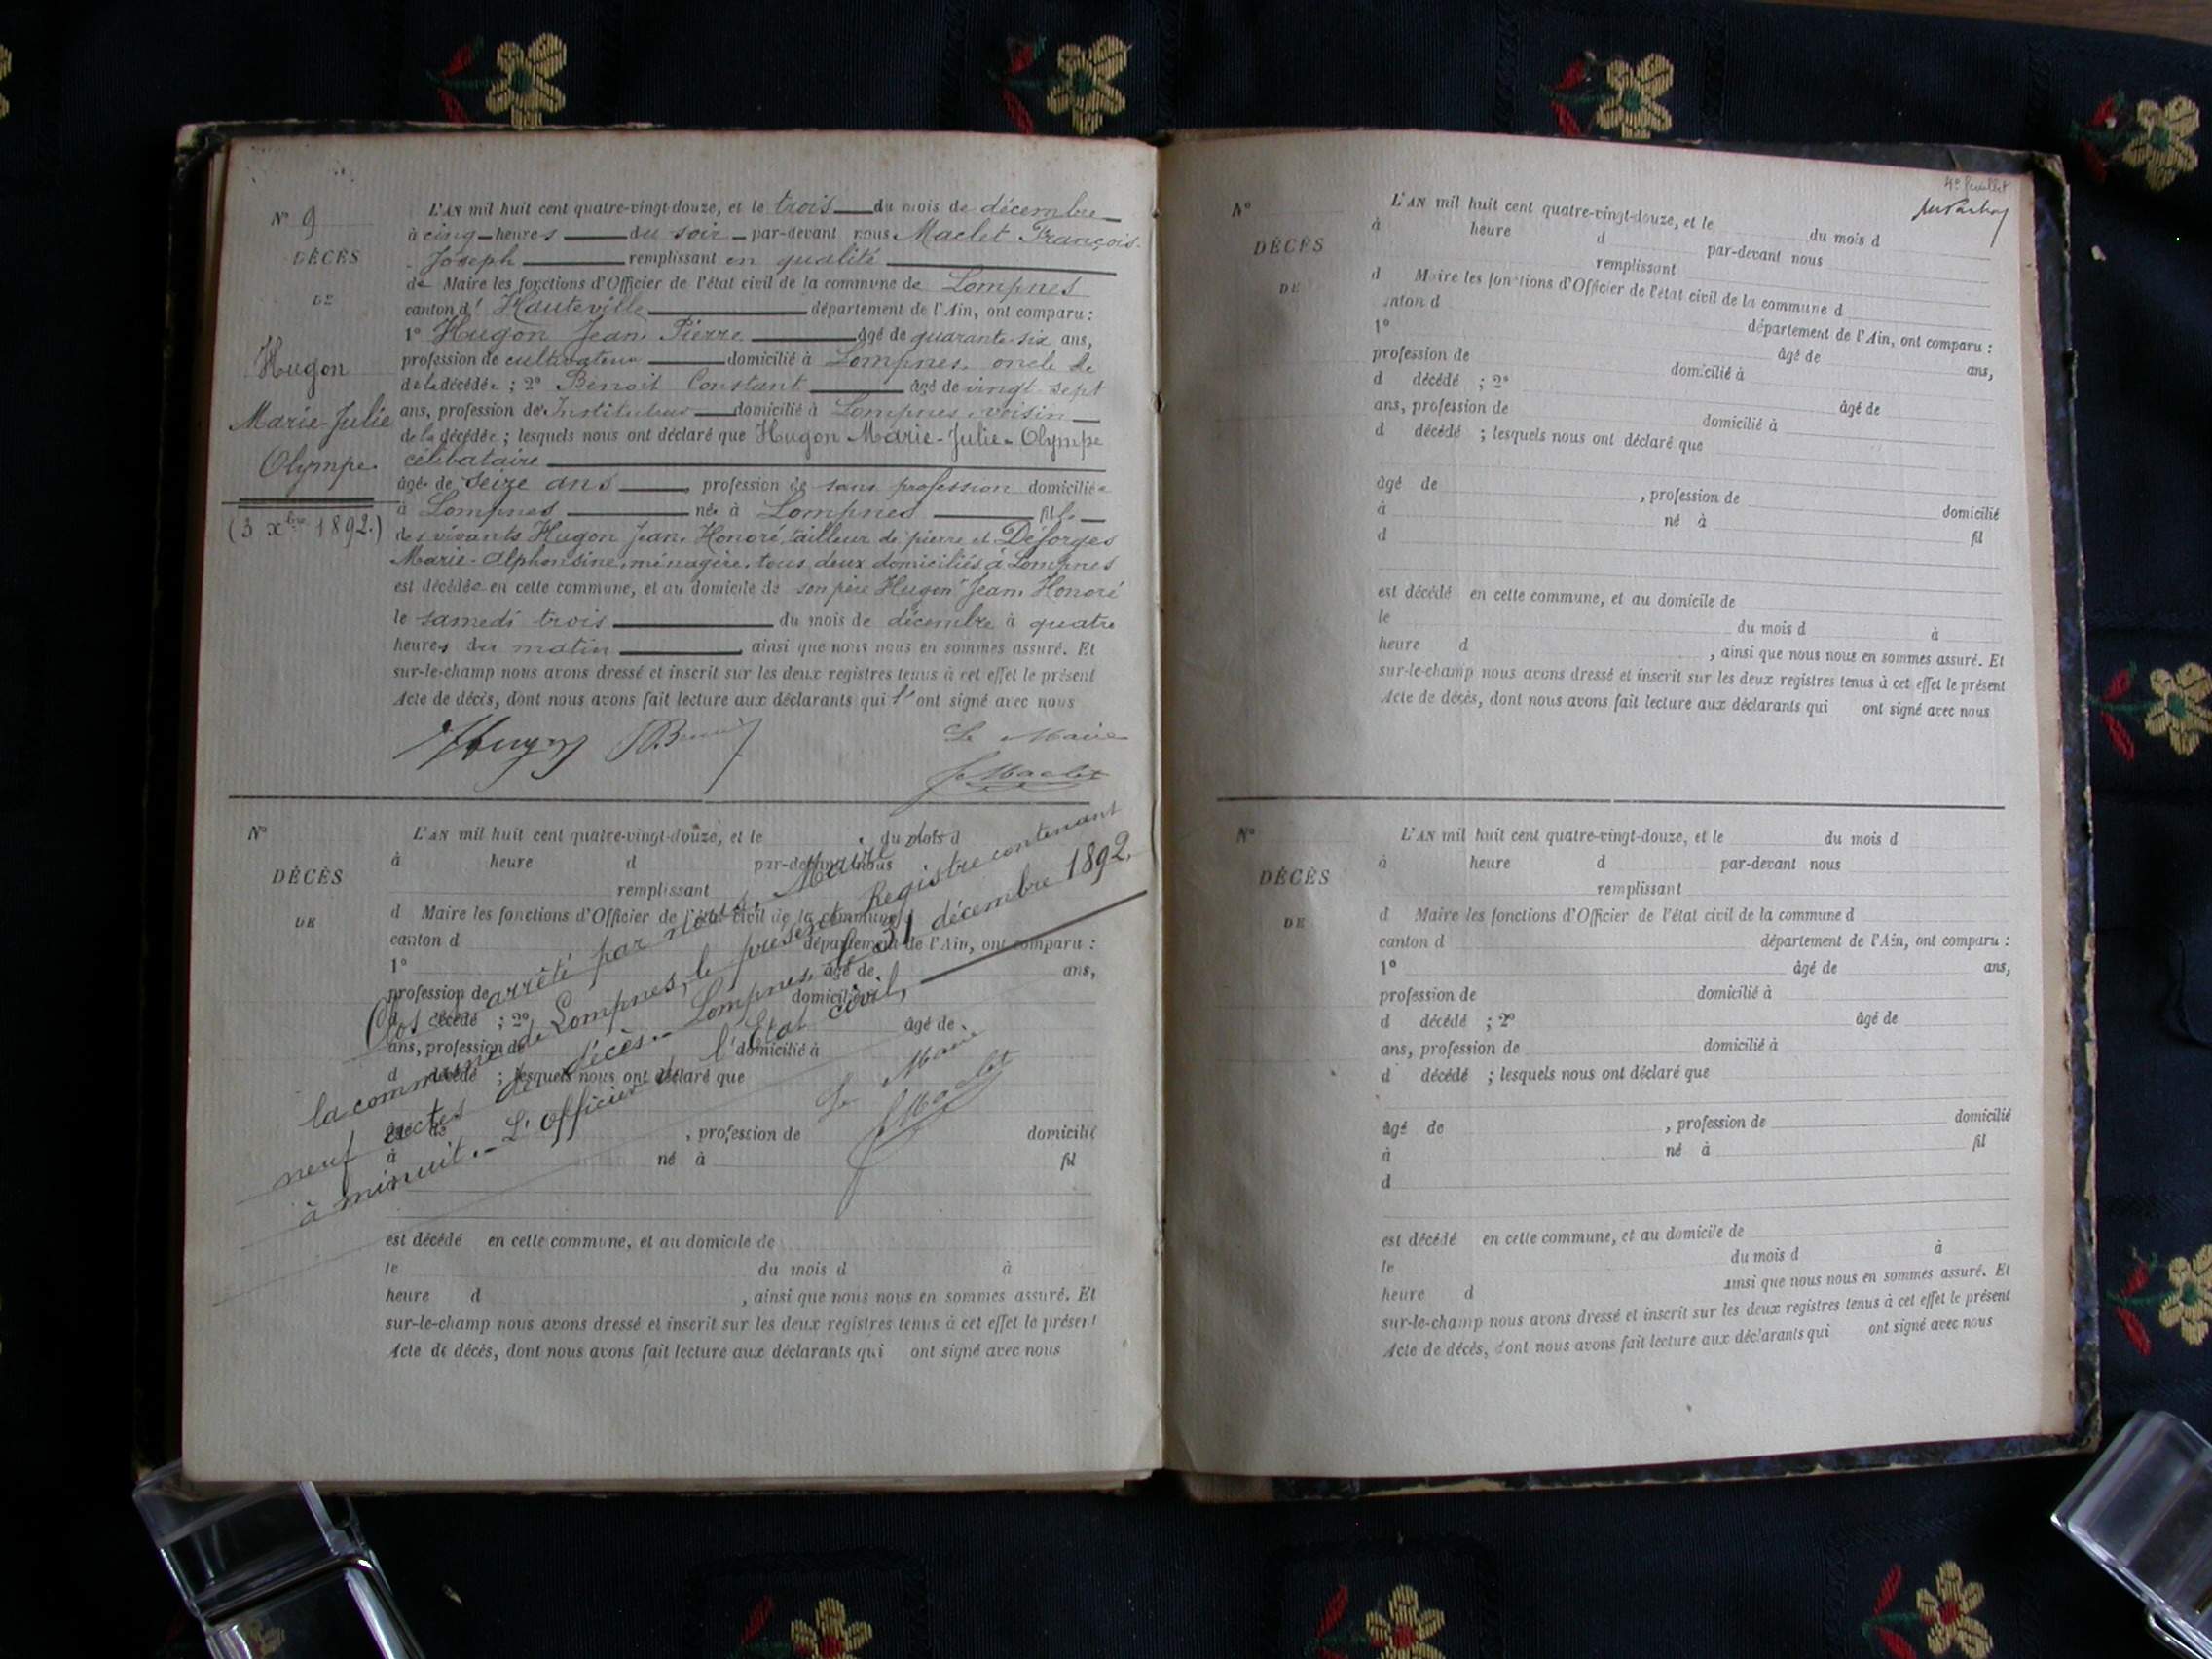 N° 9
DÉCÈS
DE
Hugon
Marie-Julie
Olympe
(3 xbre 1892.)
L'AN mil huit cent quatre-vingt-douze, et le trois du mois de décembre
à cinq heures du soir par-devant nous Maclet François-
Joseph remplissant en qualité
de Maire les fonctions d'Officier de l'état civil de la commune de Lompnes
canton d' Hauteville département de l'Ain, ont comparu :
1° Hugon Jean Pierre âgé de quarante-six ans,
profession de cultivateur domicilié à Lompnes, oncle de
de la décédée ; 2° Benoit Constant âgé de vingt-sept
ans, profession de Instituteur domicilié à Lompnes, voisin
de la décédée ; lesquels nous ont déclaré que Hugon Marie-Julie-Olympe
célibataire
âgée de seize ans, profession de sans profession domiciliée
à Lompnes née à Lompnes fille
des vivants Hugon Jean Honoré, tailleur de pierre et Déforges
Marie-Alphonsine, ménagère, tous deux domiciliés à Lompnes
est décédée en cette commune, et au domicile de son père Hugon Jean Honoré
le samedi trois du mois de décembre à quatre
heures du matin ainsi que nous nous en sommes assuré. Et
sur-le-champ nous avons dressé et inscrit sur les deux registres tenus à cet effet le présent
Acte de décès, dont nous avons fait lecture aux déclarants qui l'ont signé avec nous
Le Maire
Hugon Benoit
F Maclet
N°
DÉCÈS
DE
L'AN mil huit cent quatre-vingt-douze, et le du mois d
à heure d par-devant nous
remplissant
d Maire les fonctions d'Officier de l'état civil de la commune d
canton d département de l'Ain, ont comparu :
1° âgé de ans,
profession de domicilié à
d décédé ; 2° âgé de
ans, profession de domicilié à
d décédé ; lesquels nous ont déclaré que
âgé de , profession de domicilié
à né à fil
est décédé en cette commune, et au domicile de
le du mois d à
heure d , ainsi que nous nous en sommes assuré. Et
sur-le-champ nous avons dressé et inscrit sur les deux registres tenus à cet effet le présent
Acte de décès, dont nous avons fait lecture aux déclarants qui ont signé avec nous
Clos et arrêté par nous, Maire de
la commune de Lompnes, le présent Registre contenant
neuf actes de décès. - Lompnes, le 31 décembre 1892,
à minuit. - L'Officier de l'État civil,
Le Maire
F Maclet
4e feuillet
N°
DÉCÈS
DE
L'AN mil huit cent quatre-vingt-douze, et le du mois d
à heure d par-devant nous
remplissant
d Maire les fonctions d'Officier de l'état civil de la commune d
canton d département de l'Ain, ont comparu :
1° âgé de ans,
profession de domicilié à
d décédé ; 2° âgé de
ans, profession de domicilié à
d décédé ; lesquels nous ont déclaré que
âgé de , profession de domicilié
à né à fil
d
est décédé en cette commune, et au domicile de
le du mois d à
heure d , ainsi que nous nous en sommes assuré. Et
sur-le-champ nous avons dressé et inscrit sur les deux registres tenus à cet effet le présent
Acte de décès, dont nous avons fait lecture aux déclarants qui ont signé avec nous
N°
DÉCÈS
DE
L'AN mil huit cent quatre-vingt-douze, et le du mois d
à heure d par-devant nous
remplissant
d Maire les fonctions d'Officier de l'état civil de la commune d
canton d département de l'Ain, ont comparu :
1° âgé de ans,
profession de domicilié à
d décédé ; 2° âgé de
ans, profession de domicilié à
d décédé ; lesquels nous ont déclaré que
âgé de , profession de domicilié
à né à fil
d
est décédé en cette commune, et au domicile de
le du mois d à
heure d ainsi que nous nous en sommes assuré. Et
sur-le-champ nous avons dressé et inscrit sur les deux registres tenus à cet effet le présent
Acte de décès, dont nous avons fait lecture aux déclarants qui ont signé avec nous